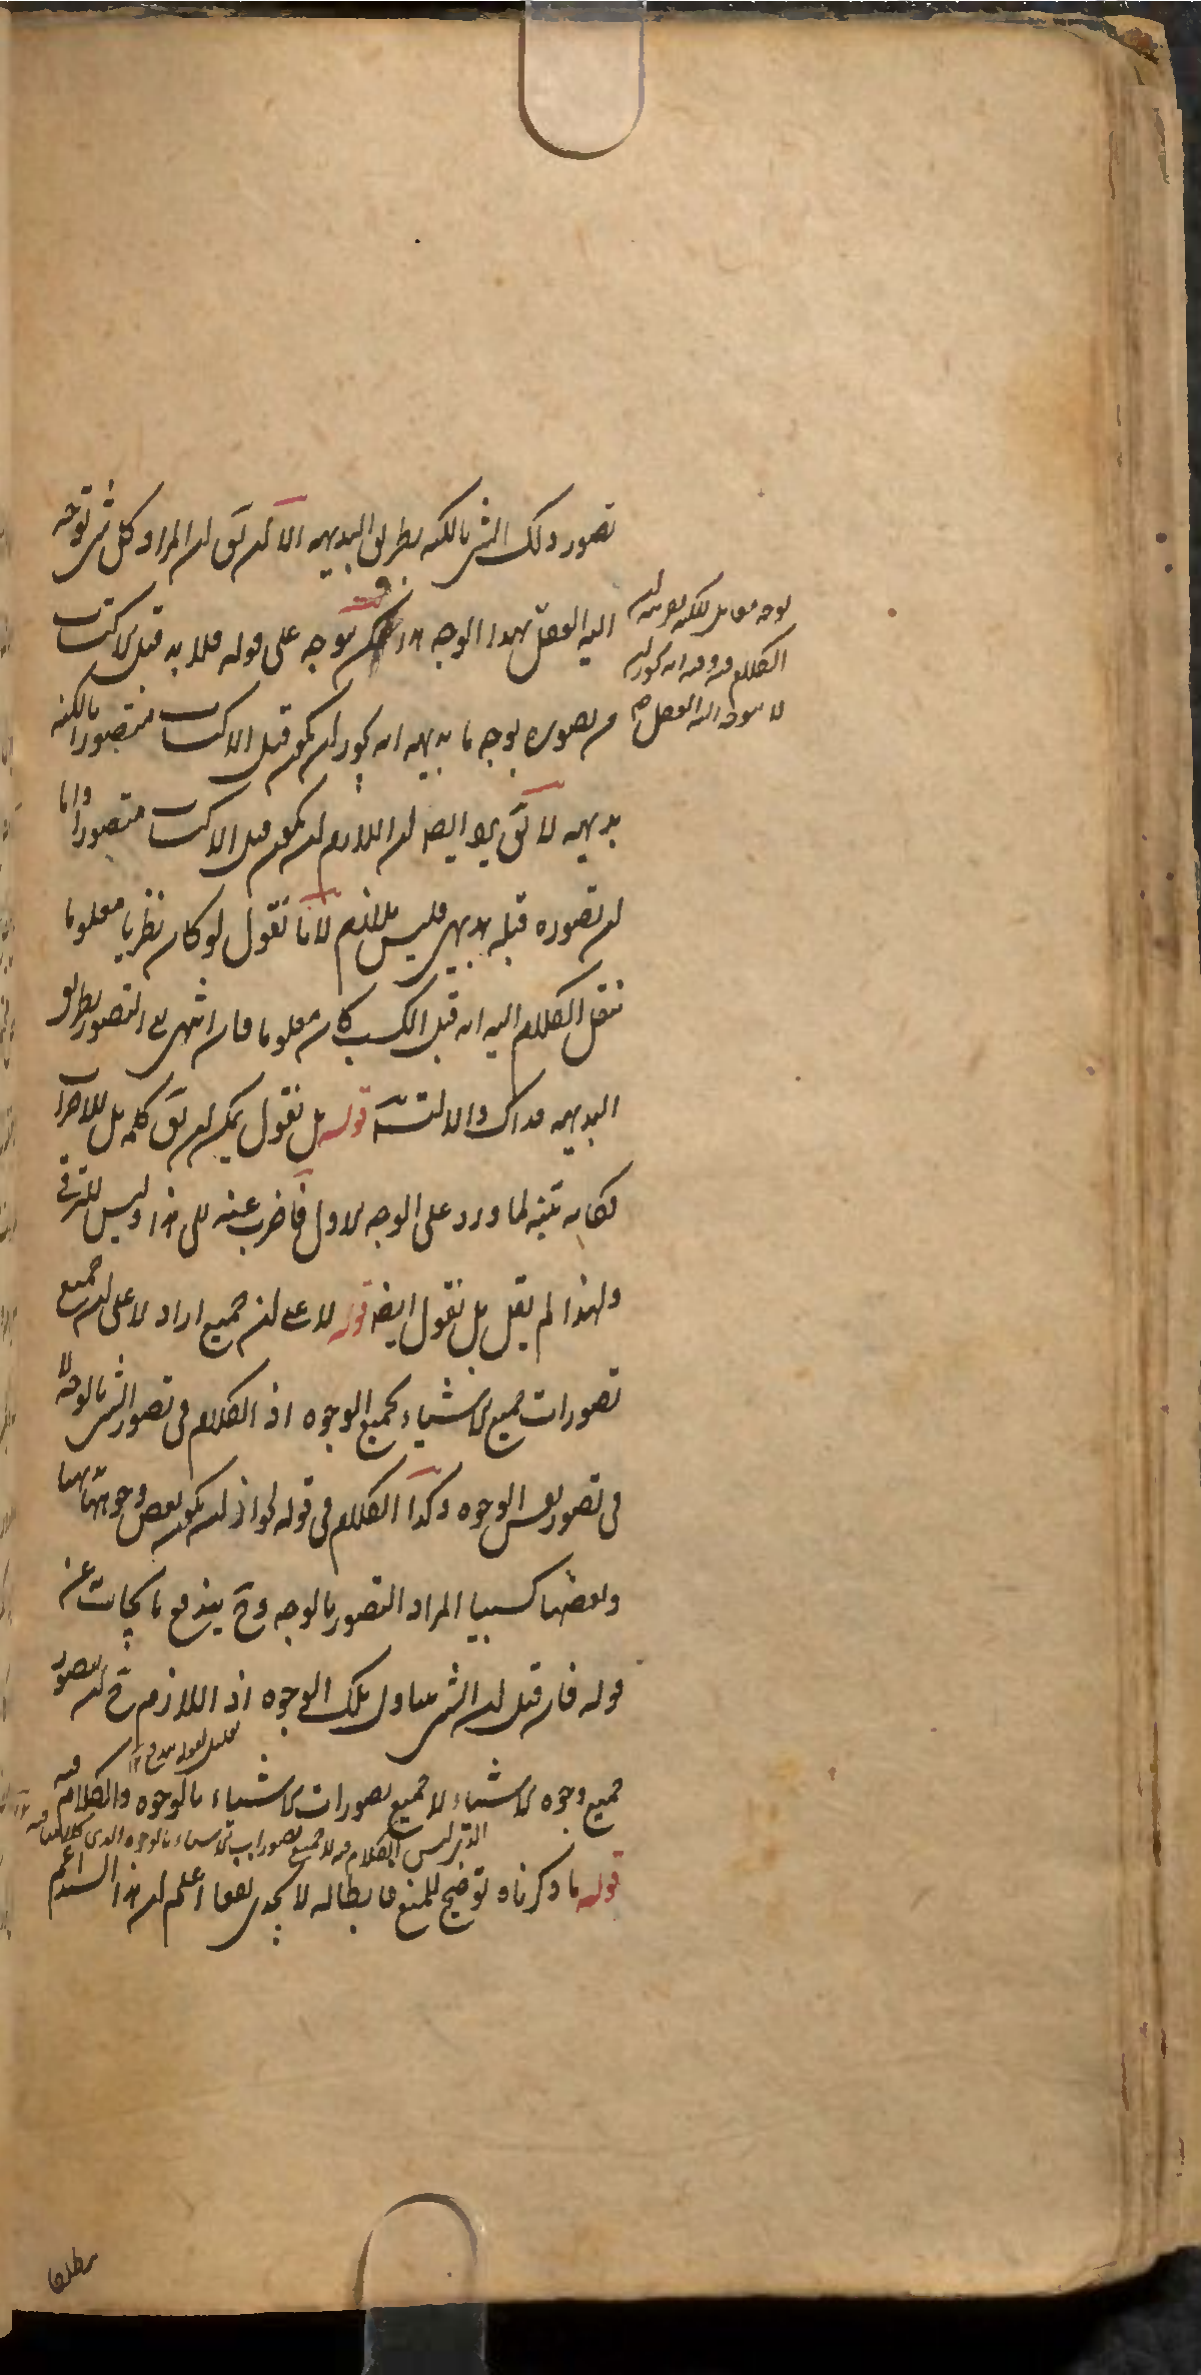 تصور ذلك الشئ بالكنه بطريق البديهه الا ان يق ان المراد كل شئ توجه
اليه العقل بهذا الوجه يتوجه على قوله فلا بد قبل الاكتساب
من تصوره بوجه ما بديهيه انه يجوز ان يكون قبل الاكتساب متصورا بالكنه
بديهيه لا يق ايضا ان اللازم ان يكون قبل الاكتساب متصورا واما
ان تصوره قبله بديهى فليس بلازم لانا نقول لو كان نظريا معلوما
ننقل الكلام اليه انه قبل الكسب كان معلوما فان انتهى الى التصور بطريق
البديهه فذاك والا لتسلسل قوله بل نقول يمكن ان يق كلمه بل للاضراب
فكانه تنبه لما ورد على الوجه الاول فاضرب عنه الى هذا وليس للترقى
ولهذا لم يقل بل نقول ايضا قوله لا على ان جميع اراد لا على ان جميع
تصورات جميع الاشياء بجميع الوجوه اذ الكلام فى تصور الشئ بالوجه لا
فى تصور نفس الوجوه وكذا الكلام فى قوله لجواز ان يكون بعض وجوهها بديهيا
وبعضها كسبيا المراد التصور بالوجه وح يندفع ما يجاب عن
قوله فان قيل ان الشئ تلك الوجوه اذ اللازم ح ان تصور
جميع وجوه الاشياء لا جميع تصورات الاشياء بالوجوه والكلام فيه
قوله ما ذكرناه توضيح للمنع فابطاله لا يجدى نفعا اعلم ان هذا السند اعم
بوجه
الكلام فيه وفيه انه يجوز ان
لا يتوجه اليه العقل صح
الكلام فيه لا جميع تصورات الاشياء بالوجوه الذى كلامنا فيه
مطلقا